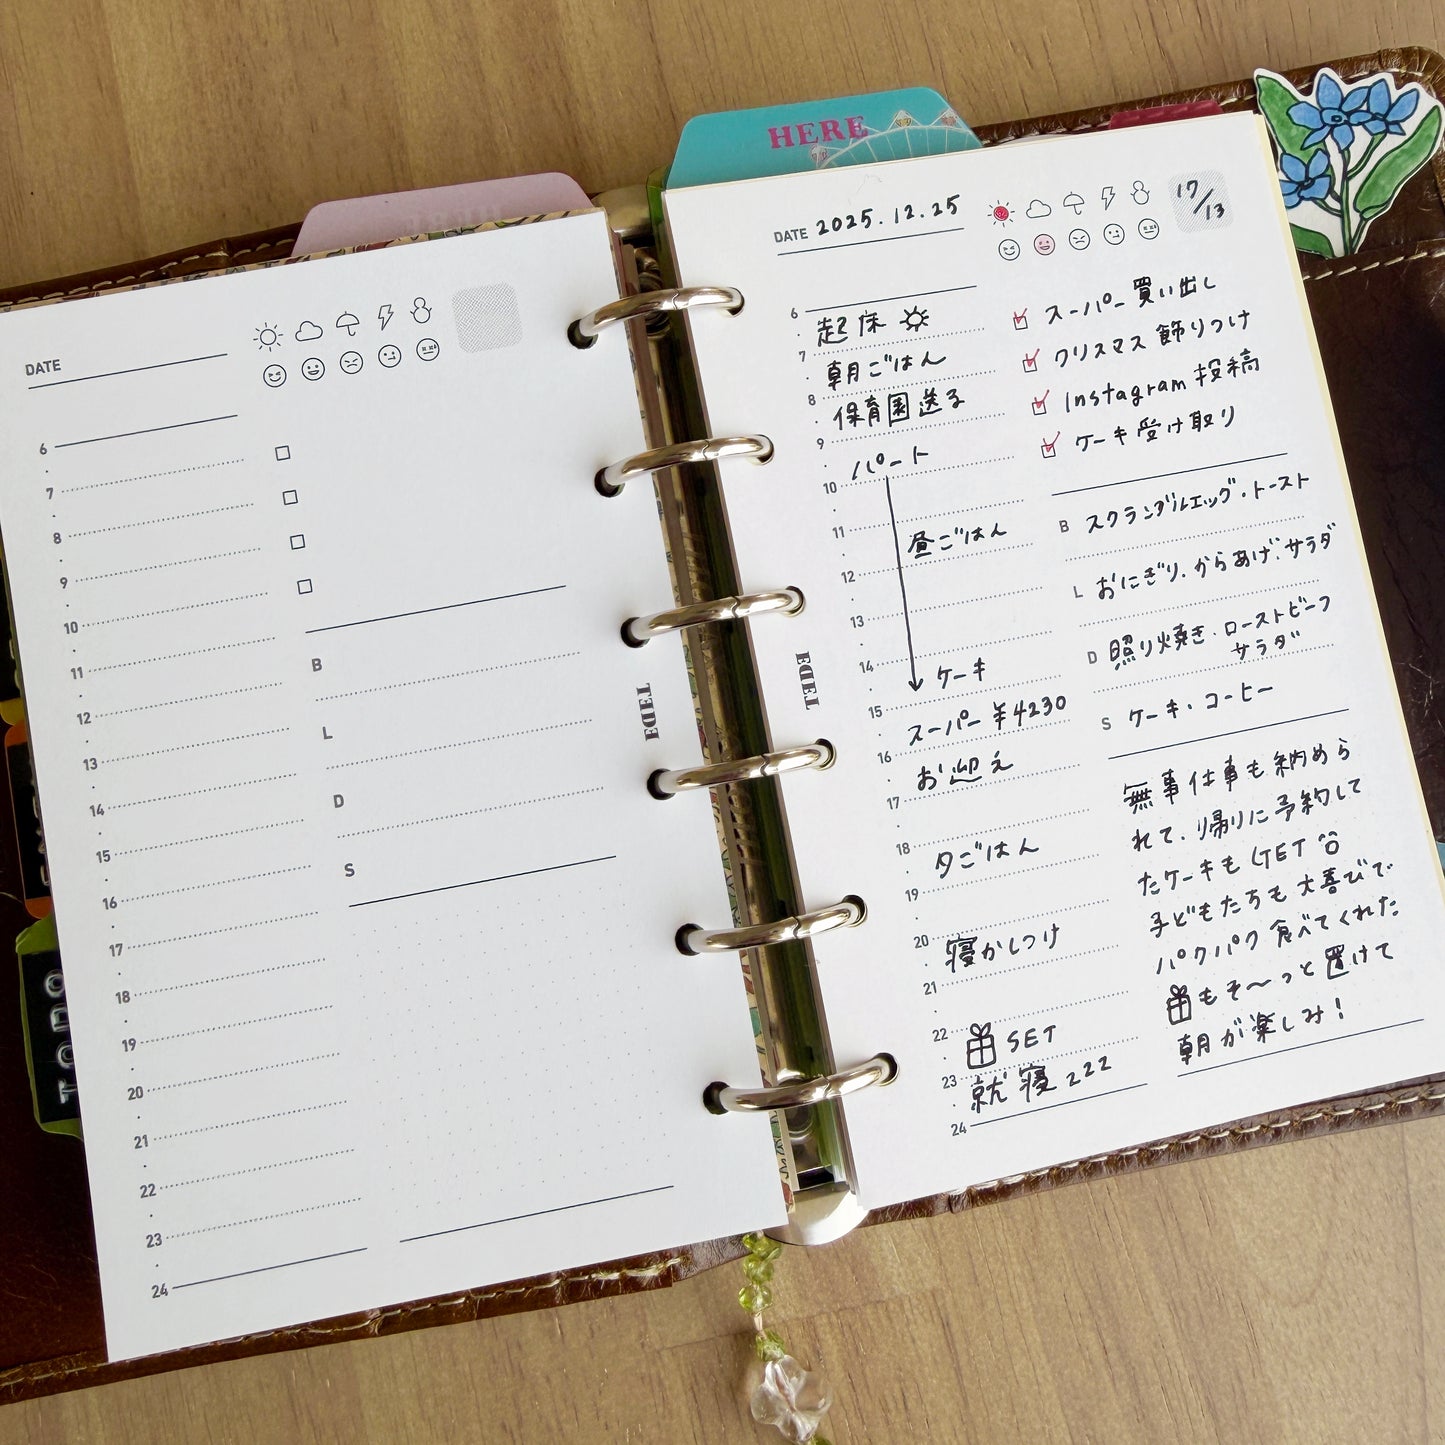 DATE
6
7
8
9
10
11
12
13
14
15
16
17
18
19
20
21
22
23
24
B
L
D
S
EDET
TODO
HERE
DATE 2025.12.25
17/13
6
起床
7
朝ごはん
8
保育園送る
9
パート
10
11
昼ごはん
12
13
14
ケーキ
15
スーパー ¥4230
16
お迎え
17
18
夕ごはん
19
20
寝かしつけ
21
22
SET
23
就寝 zzz
24
スーパー買い出し
クリスマス飾りつけ
Instagram 投稿
ケーキ受け取り
B スクランブルエッグ・トースト
L おにぎり・からあげ・サラダ
D 照り焼き・ローストビーフ
サラダ
S ケーキ・コーヒー
無事仕事も納めら
れて、帰りに予約して
たケーキもGET
子どもたちも大喜びで
パクパク食べてくれた
もそ〜っと置けて
朝が楽しみ!
EDET